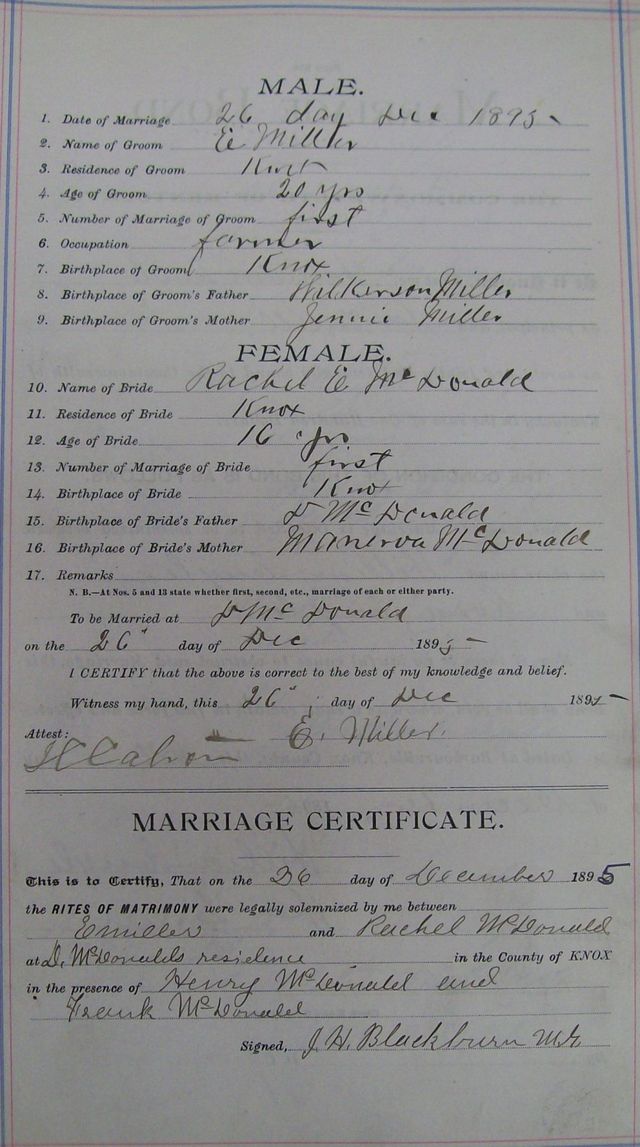 MALE.
1. Date of Marriage 26 day Dec 1895
2. Name of Groom E Miller
3. Residence of Groom Knox
4. Age of Groom 20 yrs
5. Number of Marriage of Groom first
6. Occupation farmer
7. Birthplace of Groom Knox
8. Birthplace of Groom's Father Wilkerson Miller
9. Birthplace of Groom's Mother Jennie Miller
FEMALE.
10. Name of Bride Rachel E McDonald
11. Residence of Bride Knox
12. Age of Bride 16 yrs
13. Number of Marriage of Bride first
14. Birthplace of Bride Knox
15. Birthplace of Bride's Father D McDonald
16. Birthplace of Bride's Mother Manerva McDonald
17. Remarks
N. B.—At Nos. 5 and 13 state whether first, second, etc., marriage of each or either party.
To be Married at D McDonald
on the 26" day of Dec 1895
I CERTIFY that the above is correct to the best of my knowledge and belief.
Witness my hand, this 26" day of Dec 1895
Attest: E. Miller.
MARRIAGE CERTIFICATE.
This is to Certify, That on the 26 day of December 1895
the RITES OF MATRIMONY were legally solemnized by me between
E Miller and Rachel McDonald
at D. McDonalds residence in the County of KNOX
in the presence of Henry McDonald and
Frank McDonald
Signed, J. H. Blackburn M.G